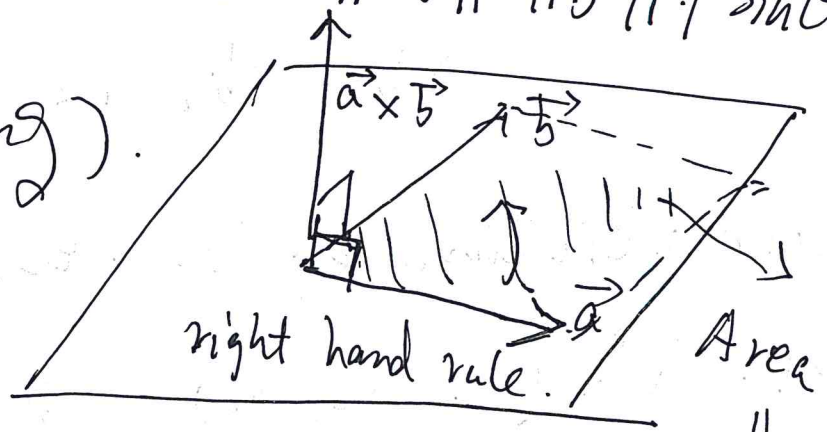 sinθ
g).
a⃗ × b⃗
b⃗
a⃗
right hand rule.
Area
||